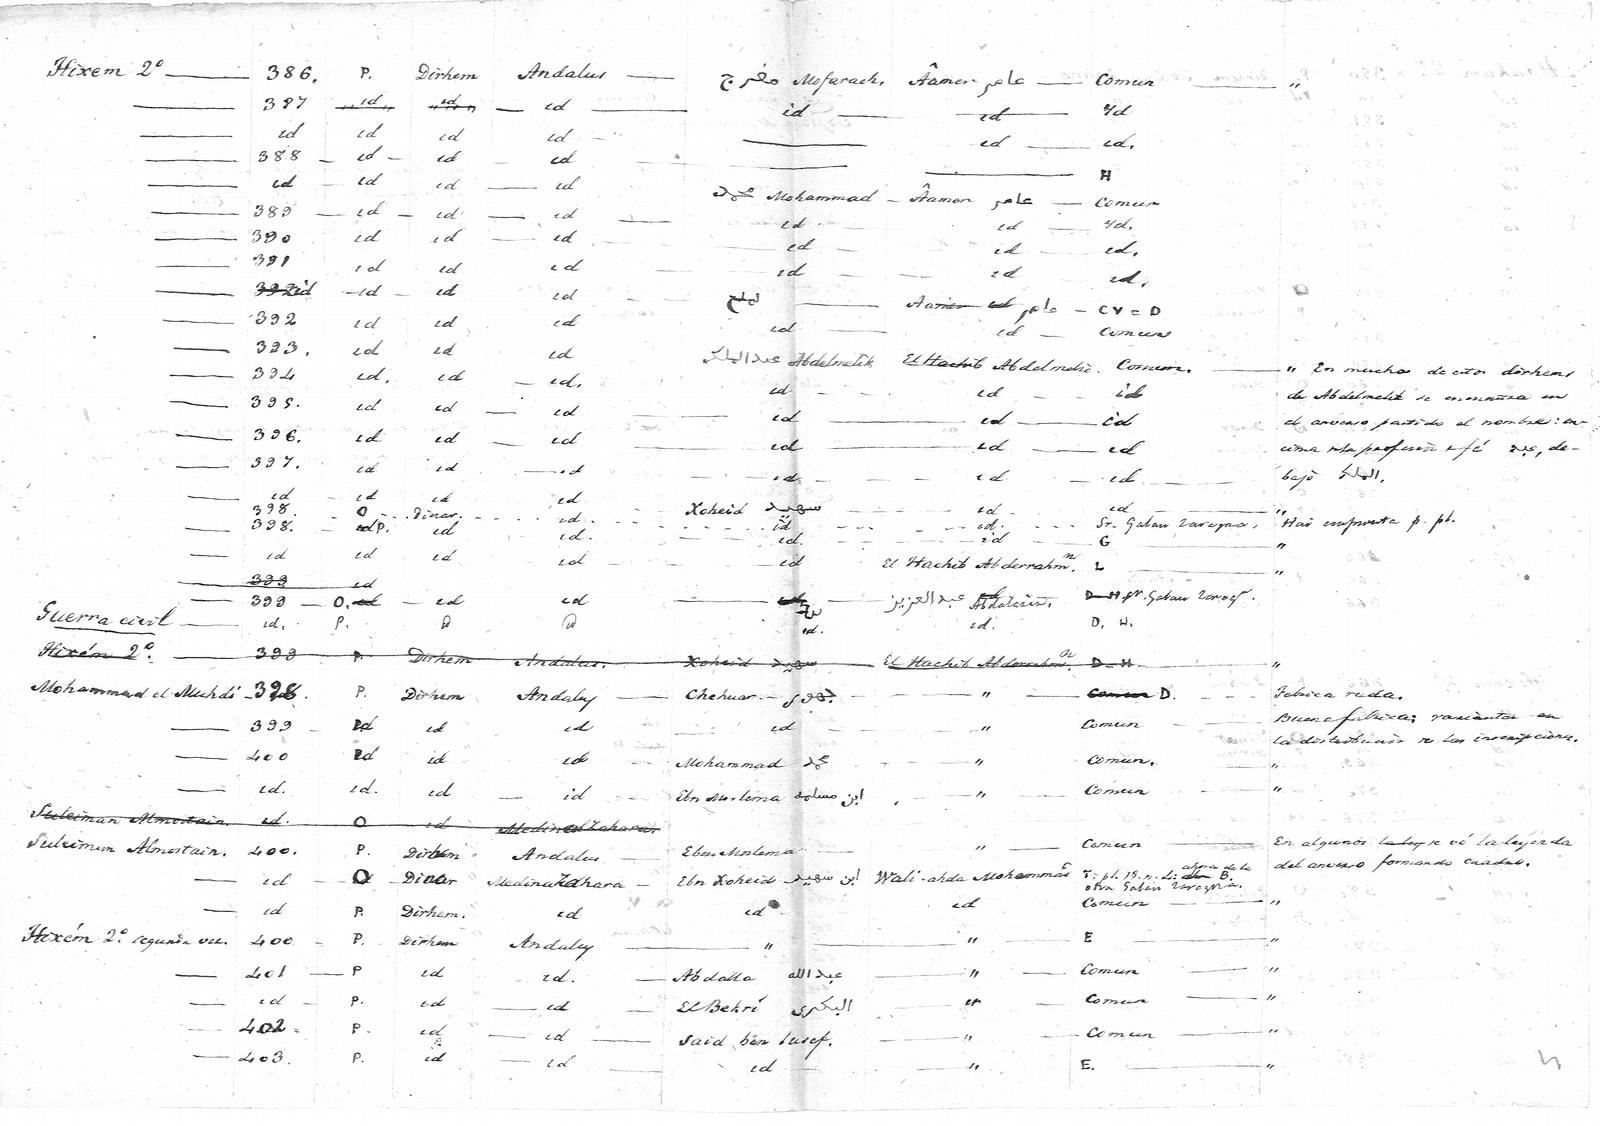 Hixem 2º 386. P. Dirhem Andalus مفرج Mofarach. Âamer عامر Comun "
387 id id id id id Yd
id id id id id id.
388 id id id H
id id id id محمد Mohammad Âamer عامر Comun
389 id id id id id Yd.
390 id id id id id id.
391 id id id id id id.
392 id id id id Aamer id عامر CV = D
392 id id id id id Comun
393. id id id عبد الملك Abdelmelik El Hachib Abdelmelic. Comun. " En muchos de estos dirhems
394 id. id id. id id id de Abdelmelik se encuentra en
395. id id id id id id el anverso partido el nombre: en-
396. id id id id id id cima de la profesion de fé عبد, de-
397. id id id id id id bajo الملك.
id id id id Xoheid سهيد id id "
398. O Dinar. id. id id. Sr. Gaban Zaragoza. Hai impronta p. pl.
398. id P. id id. id. id G "
id id id id id El Hachib Abderrahmn. L "
399 id
399 O. id id id id عبد العزيز Abdalaziz. D H Sr. Gaban Zarag.
Guerra civil id. P. id. id. D. H.
Hixém 2º. 399 P. Dirhem Andalus. Xoheid سهيد El Hachib Abderrahmn. D H "
Mohammad el Muhdi 398. P. Dirhem Andaluz Chehuar جهور " Comun D. Fabrica ruda.
399 Id id id id " Comun Buena fabrica; variantes en
la distribucion de las inscripciones.
400 Id id id Mohammad محمد " Comun. "
id. id. id id Ebn Moslema ابن مسلمه " Comun "
Suleiman Almostain. id. O id Medina Zahara.
Suleiman Almostain. 400. P. Dirhem Andalus Eben Moslema " Comun En algunos se vé la leyenda
id O Dinar Medina Zahara Ebn Xoheid ابن سهيد Wali-ahda Mohammad ahora de la B. otra Gaban Zaragoza. del anverso formando cuadro.
id P. Dirhem. id id id Comun "
Hixém 2º segunda vez. 400 P. Dirhem Andaluz " " E "
401 P id id. Abdalla عبد الله " Comun "
id P. id id El Bekrí البكرى " Comun "
402 P. id id Said ben Iusef. " Comun "
403. P. id id id " E. "